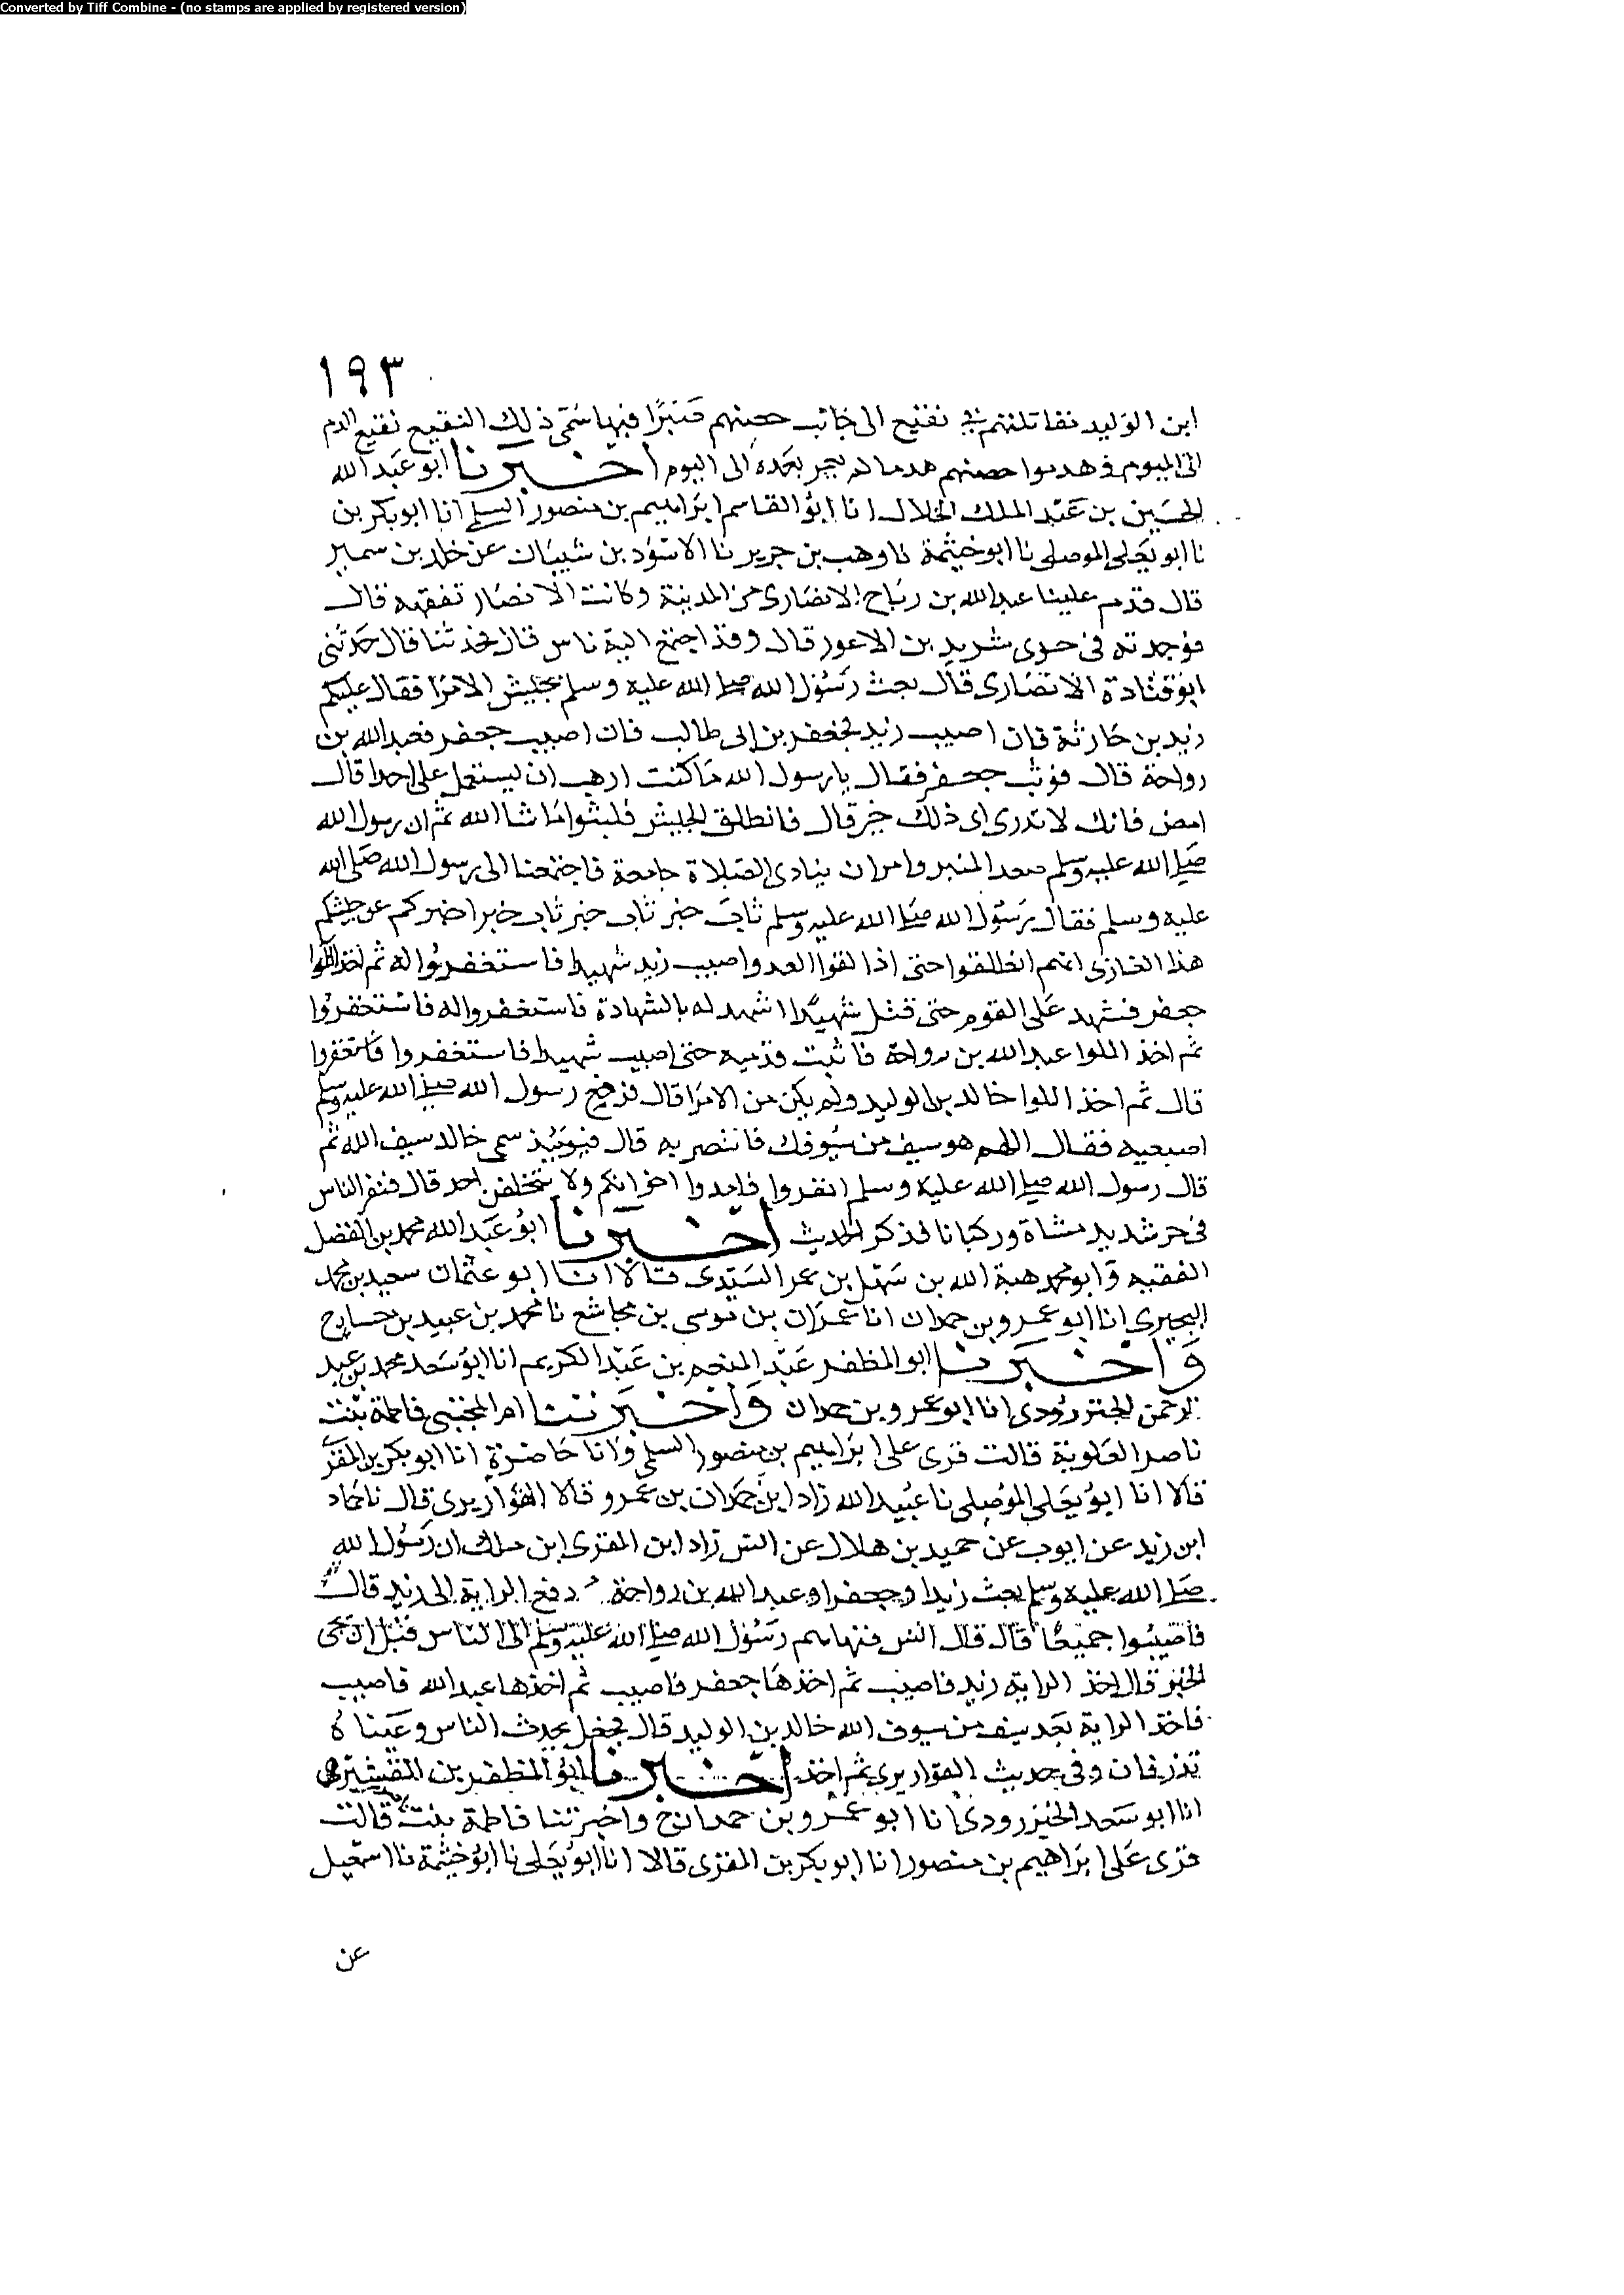 Converted by Tiff Combine - (no stamps are applied by registered version)
١٩٣
ابن الوليد مقاتلتهم في نقيع الى جانب حصنهم صبرا فبها سمى ذلك النقيع نقيع الدم
الى اليوم وهدموا حصنهم هدما لم يعمر بعده الى اليوم اخبرنا ابو عبد الله
الحسين بن عبد الملك الخلال انا ابو القاسم ابراهيم بن منصور السلمي انا ابو بكر بن
نا ابو يعلى الموصلى نا ابو خيثمة نا وهب بن جرير نا الاسود بن شيبان عن خلد بن سمير
قال قدم علينا عبد الله بن رباح الانصارى من المدينة وكانت الانصار تفقهه قال
فوجدته فى حوى شريد بن الاعور قال وقد اجتمع اليه ناس قال فحدثنا قال حدثنى
ابو قتادة الانصارى قال بعث رسول الله صلى الله عليه وسلم بجيش الامرا فقال عليكم
زيد بن حارثة فان اصيب زيد فجعفر بن ابى طالب فان اصيب جعفر فعبد الله بن
رواحة قال فوثب جعفر فقال يا رسول الله ما كنت ارهب ان يستعمل على احدا قال
امض فانك لا تدرى اى ذلك خير قال فانطلق الجيش فلبثوا ما شا الله ثم ان رسول الله
صلى الله عليه وسلم صعد المنبر وامر ان ينادى الصلاة جامعة فاجتمعنا الى رسول الله صلى الله
عليه وسلم فقال رسول الله صلى الله عليه وسلم ثاب خبر ثاب خبر ثاب خبر اخبركم عن جيشكم
هذا الغازى انهم انطلقوا حتى اذا لقوا العدو اصيب زيد شهيدا فاستغفروا له ثم اخذ اللوا
جعفر فشهد على القوم حتى قتل شهيدا اشهد له بالشهادة فاستغفروا له فاستغفروا
ثم اخذ اللوا عبد الله بن رواحة فاثبت قدميه حتى اصيب شهيدا فاستغفروا فاستغفروا
قال ثم اخذ اللوا خالد بن الوليد ولم يكن من الامرا قال فرفع رسول الله صلى الله عليه وسلم
اصبعيه فقال اللهم هو سيف من سيوفك فانتصر به قال فيومئذ سمى خالد سيف الله ثم
قال رسول الله صلى الله عليه وسلم انفروا فامدوا اخوانكم ولا يتخلفن احد قال فنفر الناس
فى حر شديد مشاة وركبانا فذكر الحديث اخبرنا ابو عبد الله محمد بن الفضل
الفقيه وابو محمد هبة الله بن سهل بن عمر السيدى قالا انا ابو عثمان سعيد بن محمد
البحيرى انا ابو عمرو بن حمدان انا عمران بن موسى بن مجاشع نا محمد بن عبيد بن حساب ح
واخبرنا ابو المظفر عبد المنعم بن عبد الكريم انا ابو سعد محمد بن عبد
الرحمن الجنزرودى انا ابو عمرو بن حمدان واخبرتنا ام المجتبى فاطمة بنت
ناصر العلوية قالت قرى على ابراهيم بن منصور السلمى وانا حاضرة انا ابو بكر بن المقرى
قالا انا ابو يعلى الموصلى نا عبيد الله زاد ابن حمدان بن عمرو قالا القواريرى قال نا حماد
ابن زيد عن ايوب عن حميد بن هلال عن انس زاد ابن المقرى ابن ملك ان رسول الله
صلى الله عليه وسلم بعث زيدا وجعفرا وعبد الله بن رواحة دفع الراية الى زيد قال
فاصيبوا جميعا قال قال انس فنعاهم رسول الله صلى الله عليه وسلم الى الناس قبل ان يجى
الخبر قال اخذ الراية زيد فاصيب ثم اخذها جعفر فاصيب ثم اخذها عبد الله فاصيب
فاخذ الراية بعد سيف من سيوف الله خالد بن الوليد قال فجعل يحدث الناس وعيناه
تذرفان وفى حديث القواريرى ثم اخذ اخبرنا ابو المظفر بن القشيرى
انا ابو سعد الجنزرودى انا ابو عمرو بن حمدان ح واخبرتنا فاطمة بنت قالت
قرى على ابراهيم بن منصور انا ابو بكر بن المقرى قالا انا ابو يعلى نا ابو خيثمة نا اسمعيل
عن